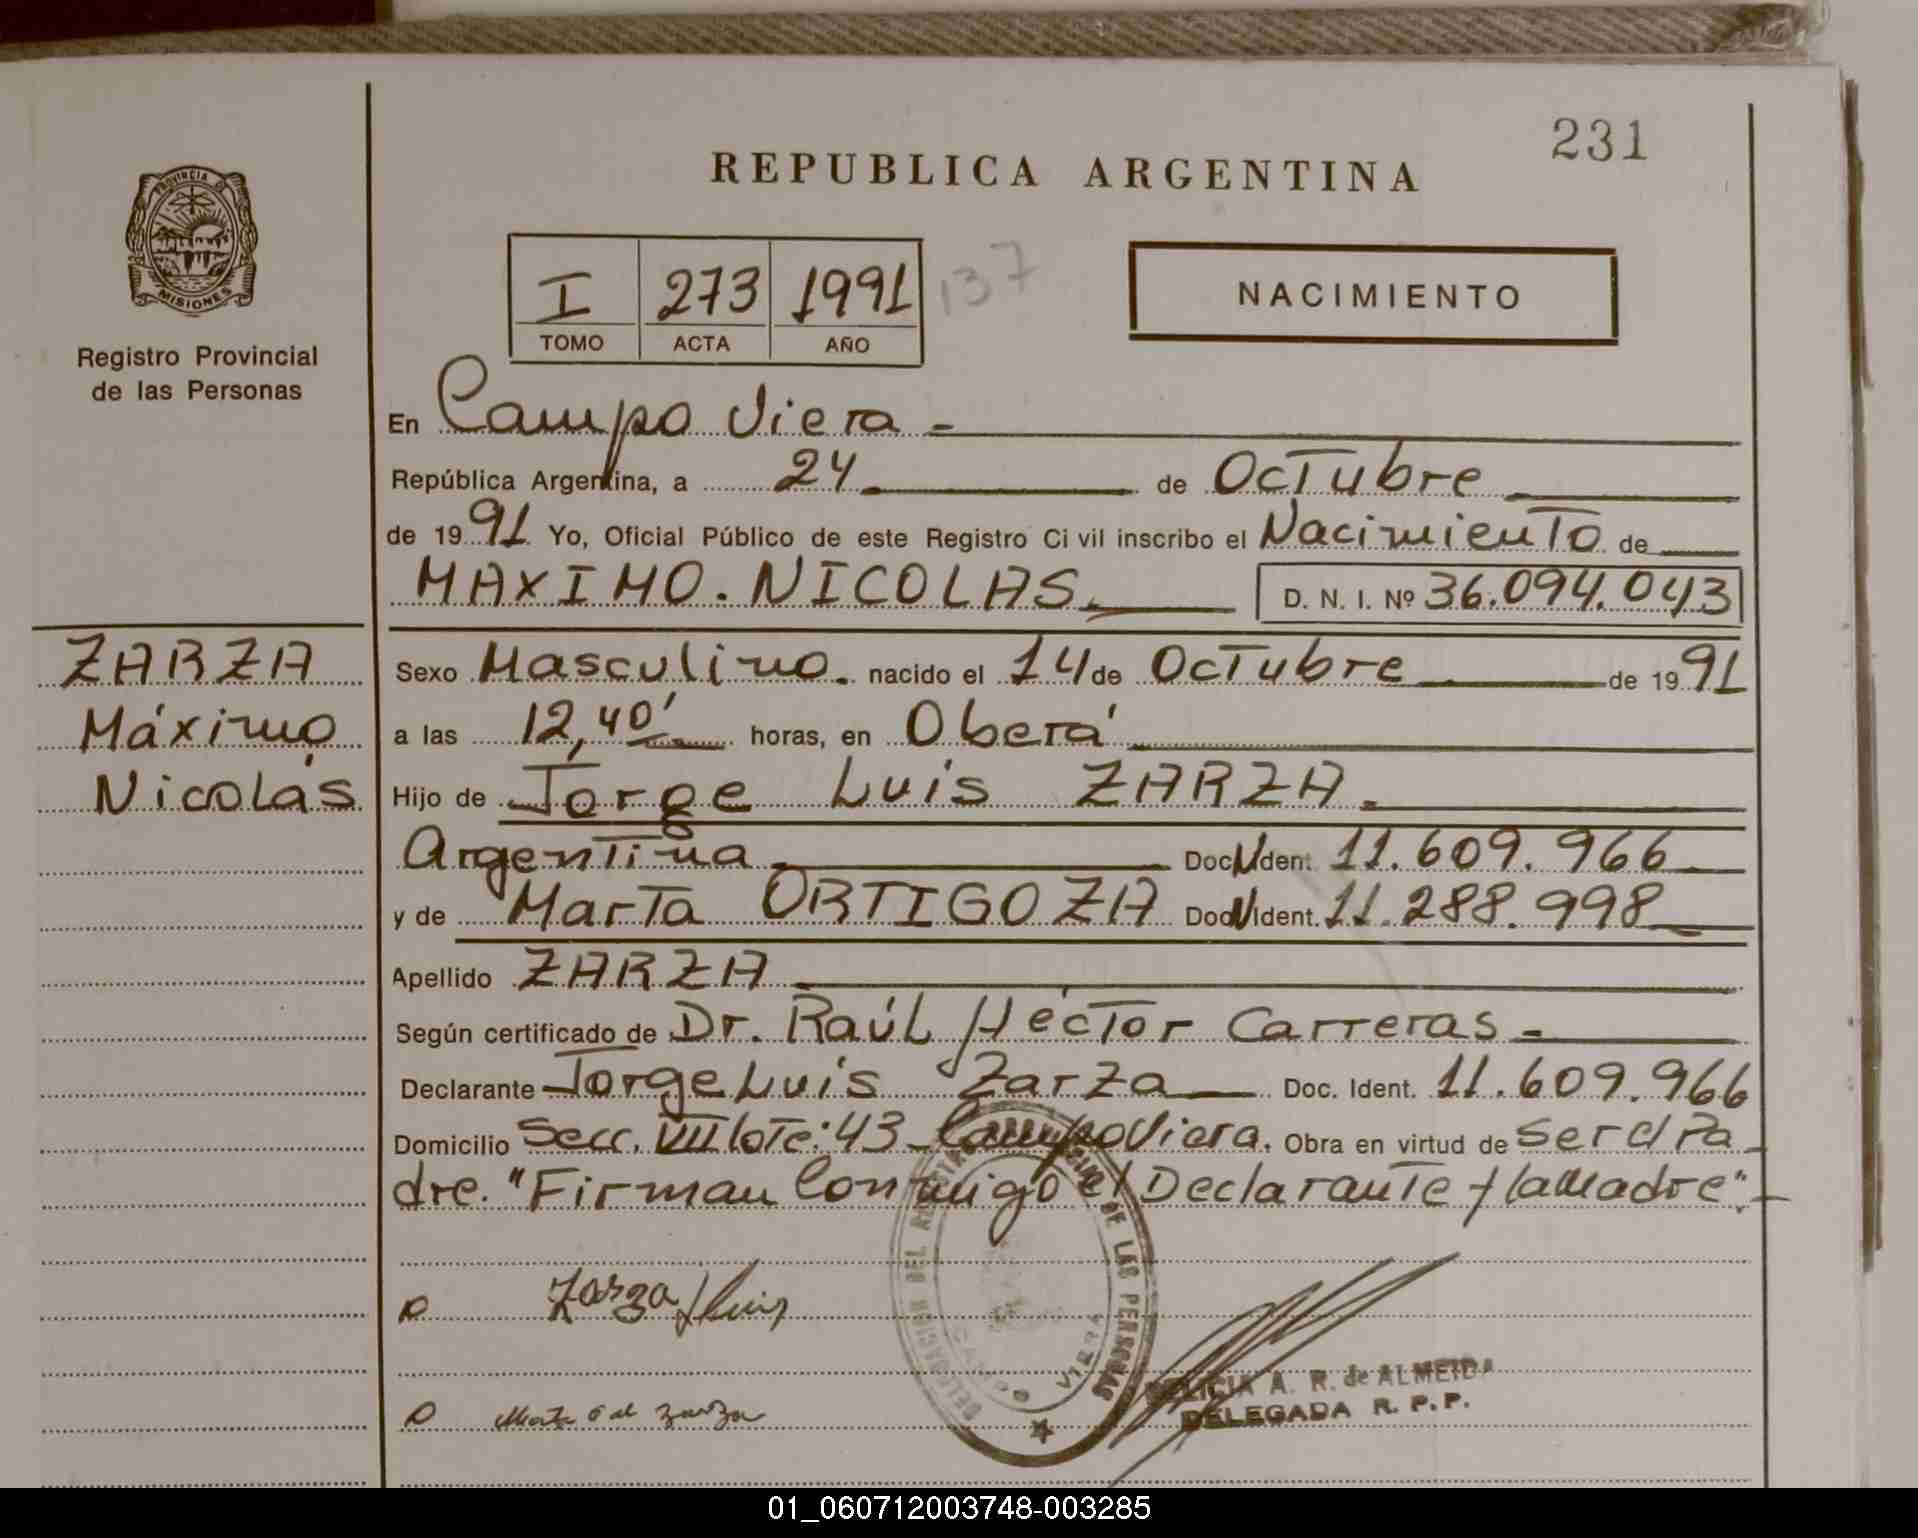 231
REPUBLICA ARGENTINA
PROVINCIA DE
MISIONES
Registro Provincial
de las Personas
I 273 1991 137
TOMO ACTA AÑO
NACIMIENTO
En Campo Viera -
República Argentina, a 24 de Octubre
de 1991 Yo, Oficial Público de este Registro Civil inscribo el Nacimiento de
MAXIMO. NICOLAS. D. N. I. Nº 36.094.043
ZARZA
Máximo
Nicolás
Sexo Masculino. nacido el 14 de Octubre de 1991
a las 12,40' horas, en Oberá
Hijo de Jorge Luis ZARZA.
Argentina Doc. N Ident. 11.609.966
y de Marta ORTIGOZA Doc. N Ident. 11.288.998
Apellido ZARZA
Según certificado de Dr. Raúl Héctor Carreras -
Declarante Jorge Luis Zarza Doc. Ident. 11.609.966
Domicilio Secc. VII lote: 43 - Campo Viera. Obra en virtud de ser el Pa-
dre. "Firman Conmigo el Declarante y la Madre".-
Zarza J Luis
Marta O de Zarza
DELEGACION DEL REGISTRO PROVINCIAL DE LAS PERSONAS
CAMPO VIERA
FELICIA A. R. de ALMEIDA
DELEGADA R. P. P.
01_060712003748-003285